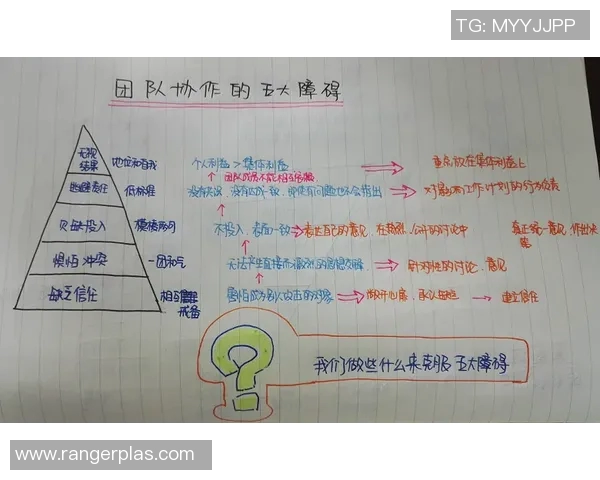 TG: MYYJJPP
团队协作的五大障碍
无视结果 地位和自我 个人利益 > 集体利益 重点放在集体利益上
团队成员不能相互
逃避责任 低标准 没有 没有达成一致,即使有问题也不会指出 对 工作计划的行为负责
欠缺投入 模棱两可 不投入,表面一致 表达自己的意见,在 公开的讨论中 真正统一意见,作出决定
惧怕冲突 一团和气 无法产生直接而激烈的思想交锋 针对性的讨论,意见
缺乏信任 相互 戒备 害怕成为别人攻击的对象 敞开心扉,承认缺 建立信任
?
我们做些什么来克服五大障碍
www.rangerplas.com